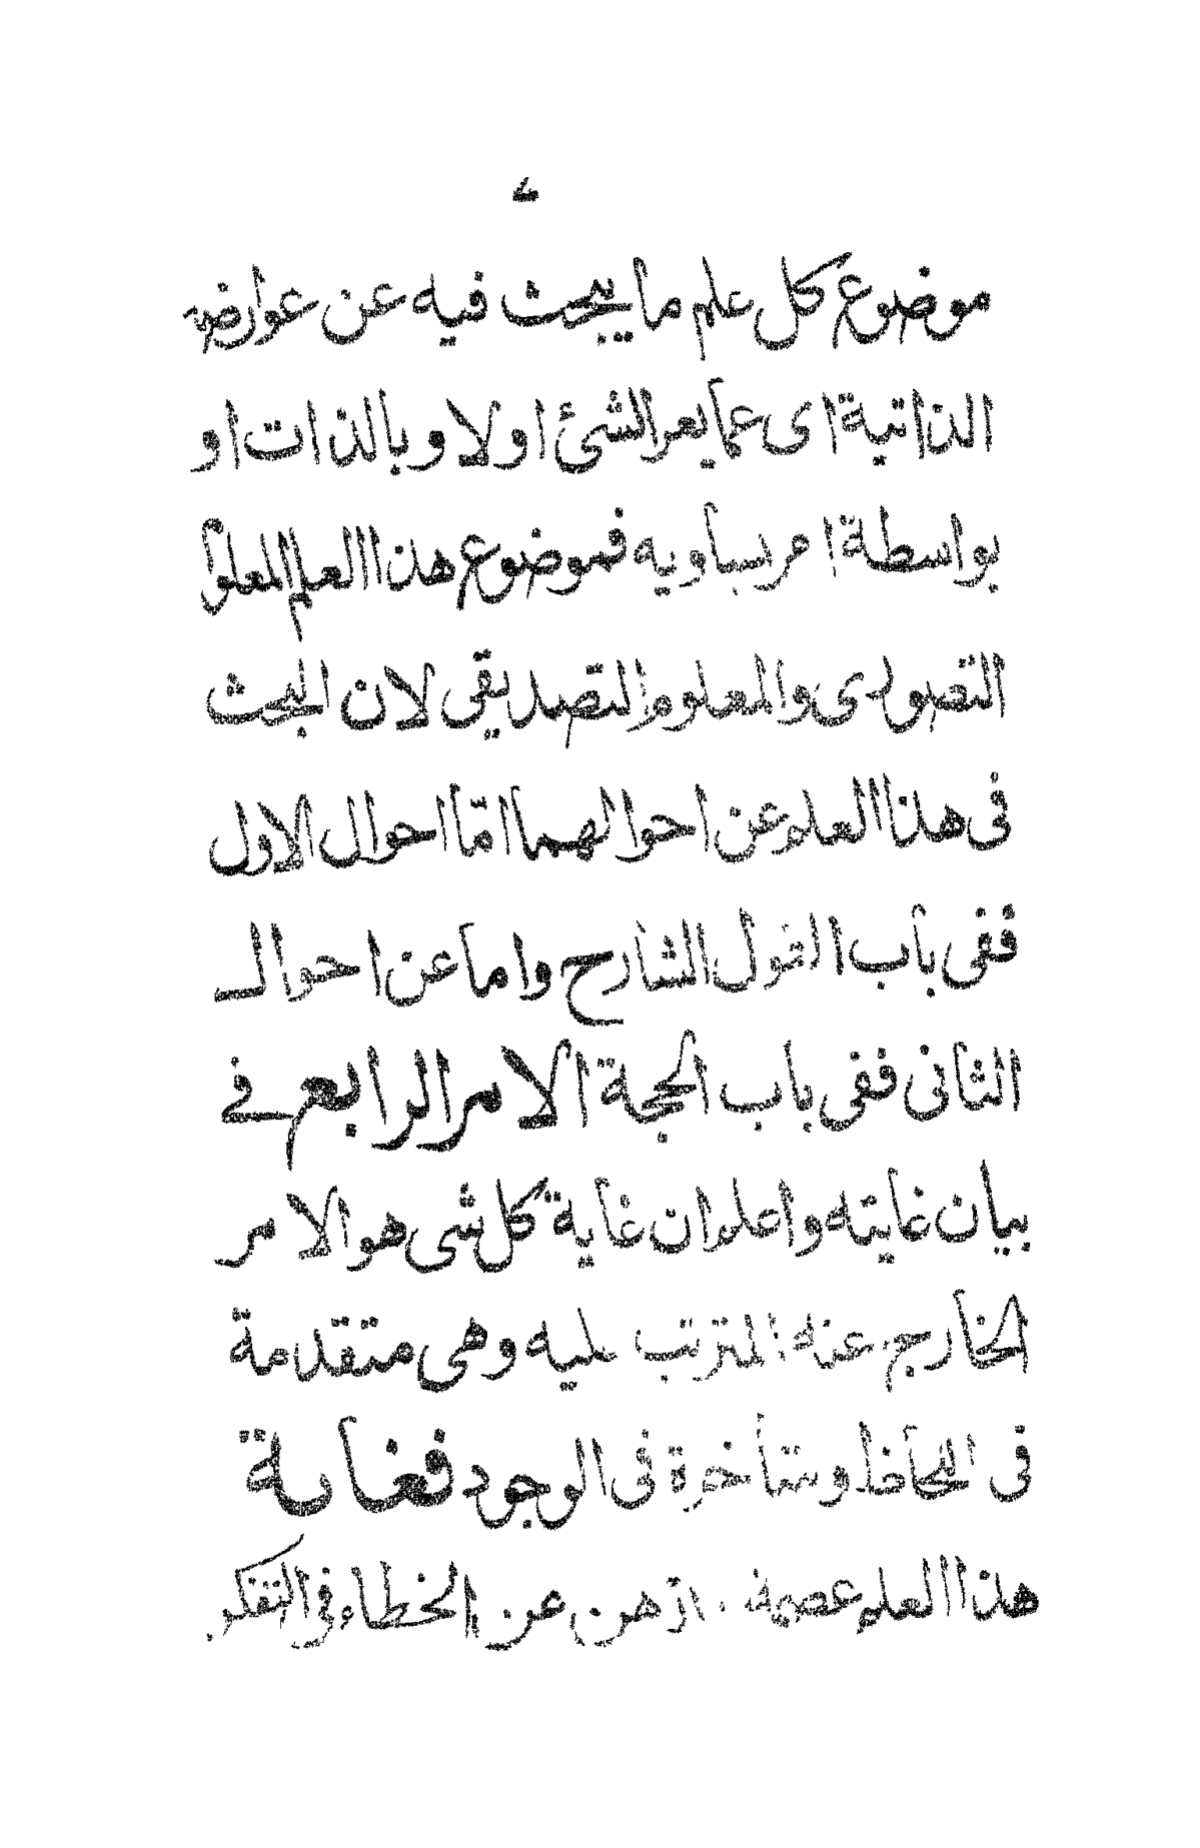 موضوع كل علم ما يبحث فيه عن عوارضه
الذاتية اى عما يعر الشئ اولا وبالذات او
بواسطة امر يساويه فموضوع هذا العلم المعلوم
التصورى والمعلوم التصديقى لان البحث
فى هذا العلم عن احوالهما امّا احوال الاول
ففى باب القول الشارح واما عن احوال
الثانى ففى باب الحجة الامر الرابع فے
بيان غايته واعلم ان غاية كل شى هو الامر
الخارج عنه المترتب عليه وهى متقدمة
فى اللحاظ ومتأخرة فى الوجود فغاية
هذا العلم عصمة الذهن عن الخطاء فى التفكر